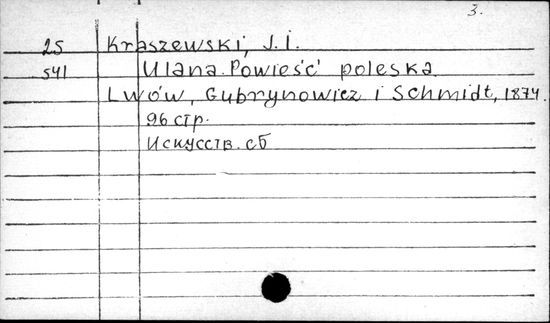 3.
25 Kraszewski, J. I.
541 Ulana. Powieść poleska.
Lwów, Gubrynowicz i Schmidt, 1874.
96 стр.
Искусств. сб